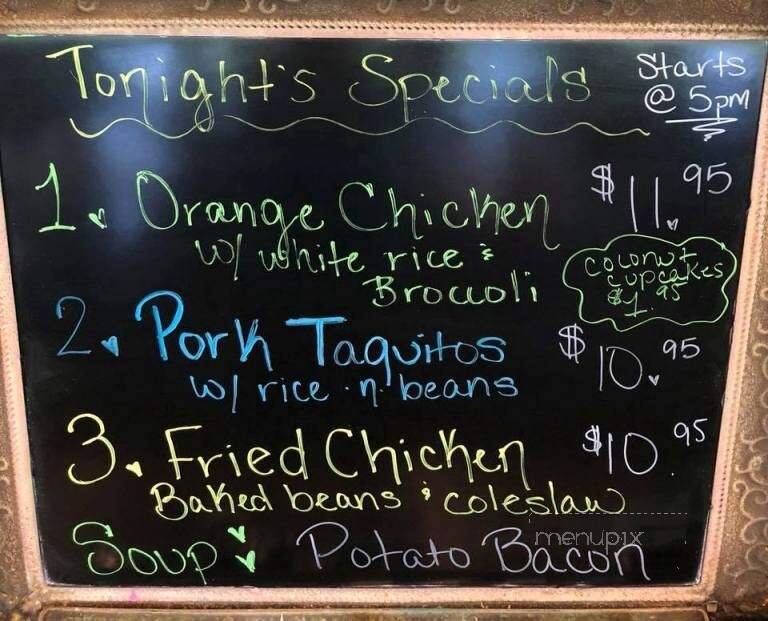 Tonight's Specials
Starts
@ 5pm
1. Orange Chicken $11.95
w/ white rice &
Broccoli
coconut
cupcakes
$1.95
2. Pork Taquitos $10.95
w/ rice n beans
3. Fried Chicken $10.95
Baked beans & coleslaw
Soup: Potato Bacon
menupix